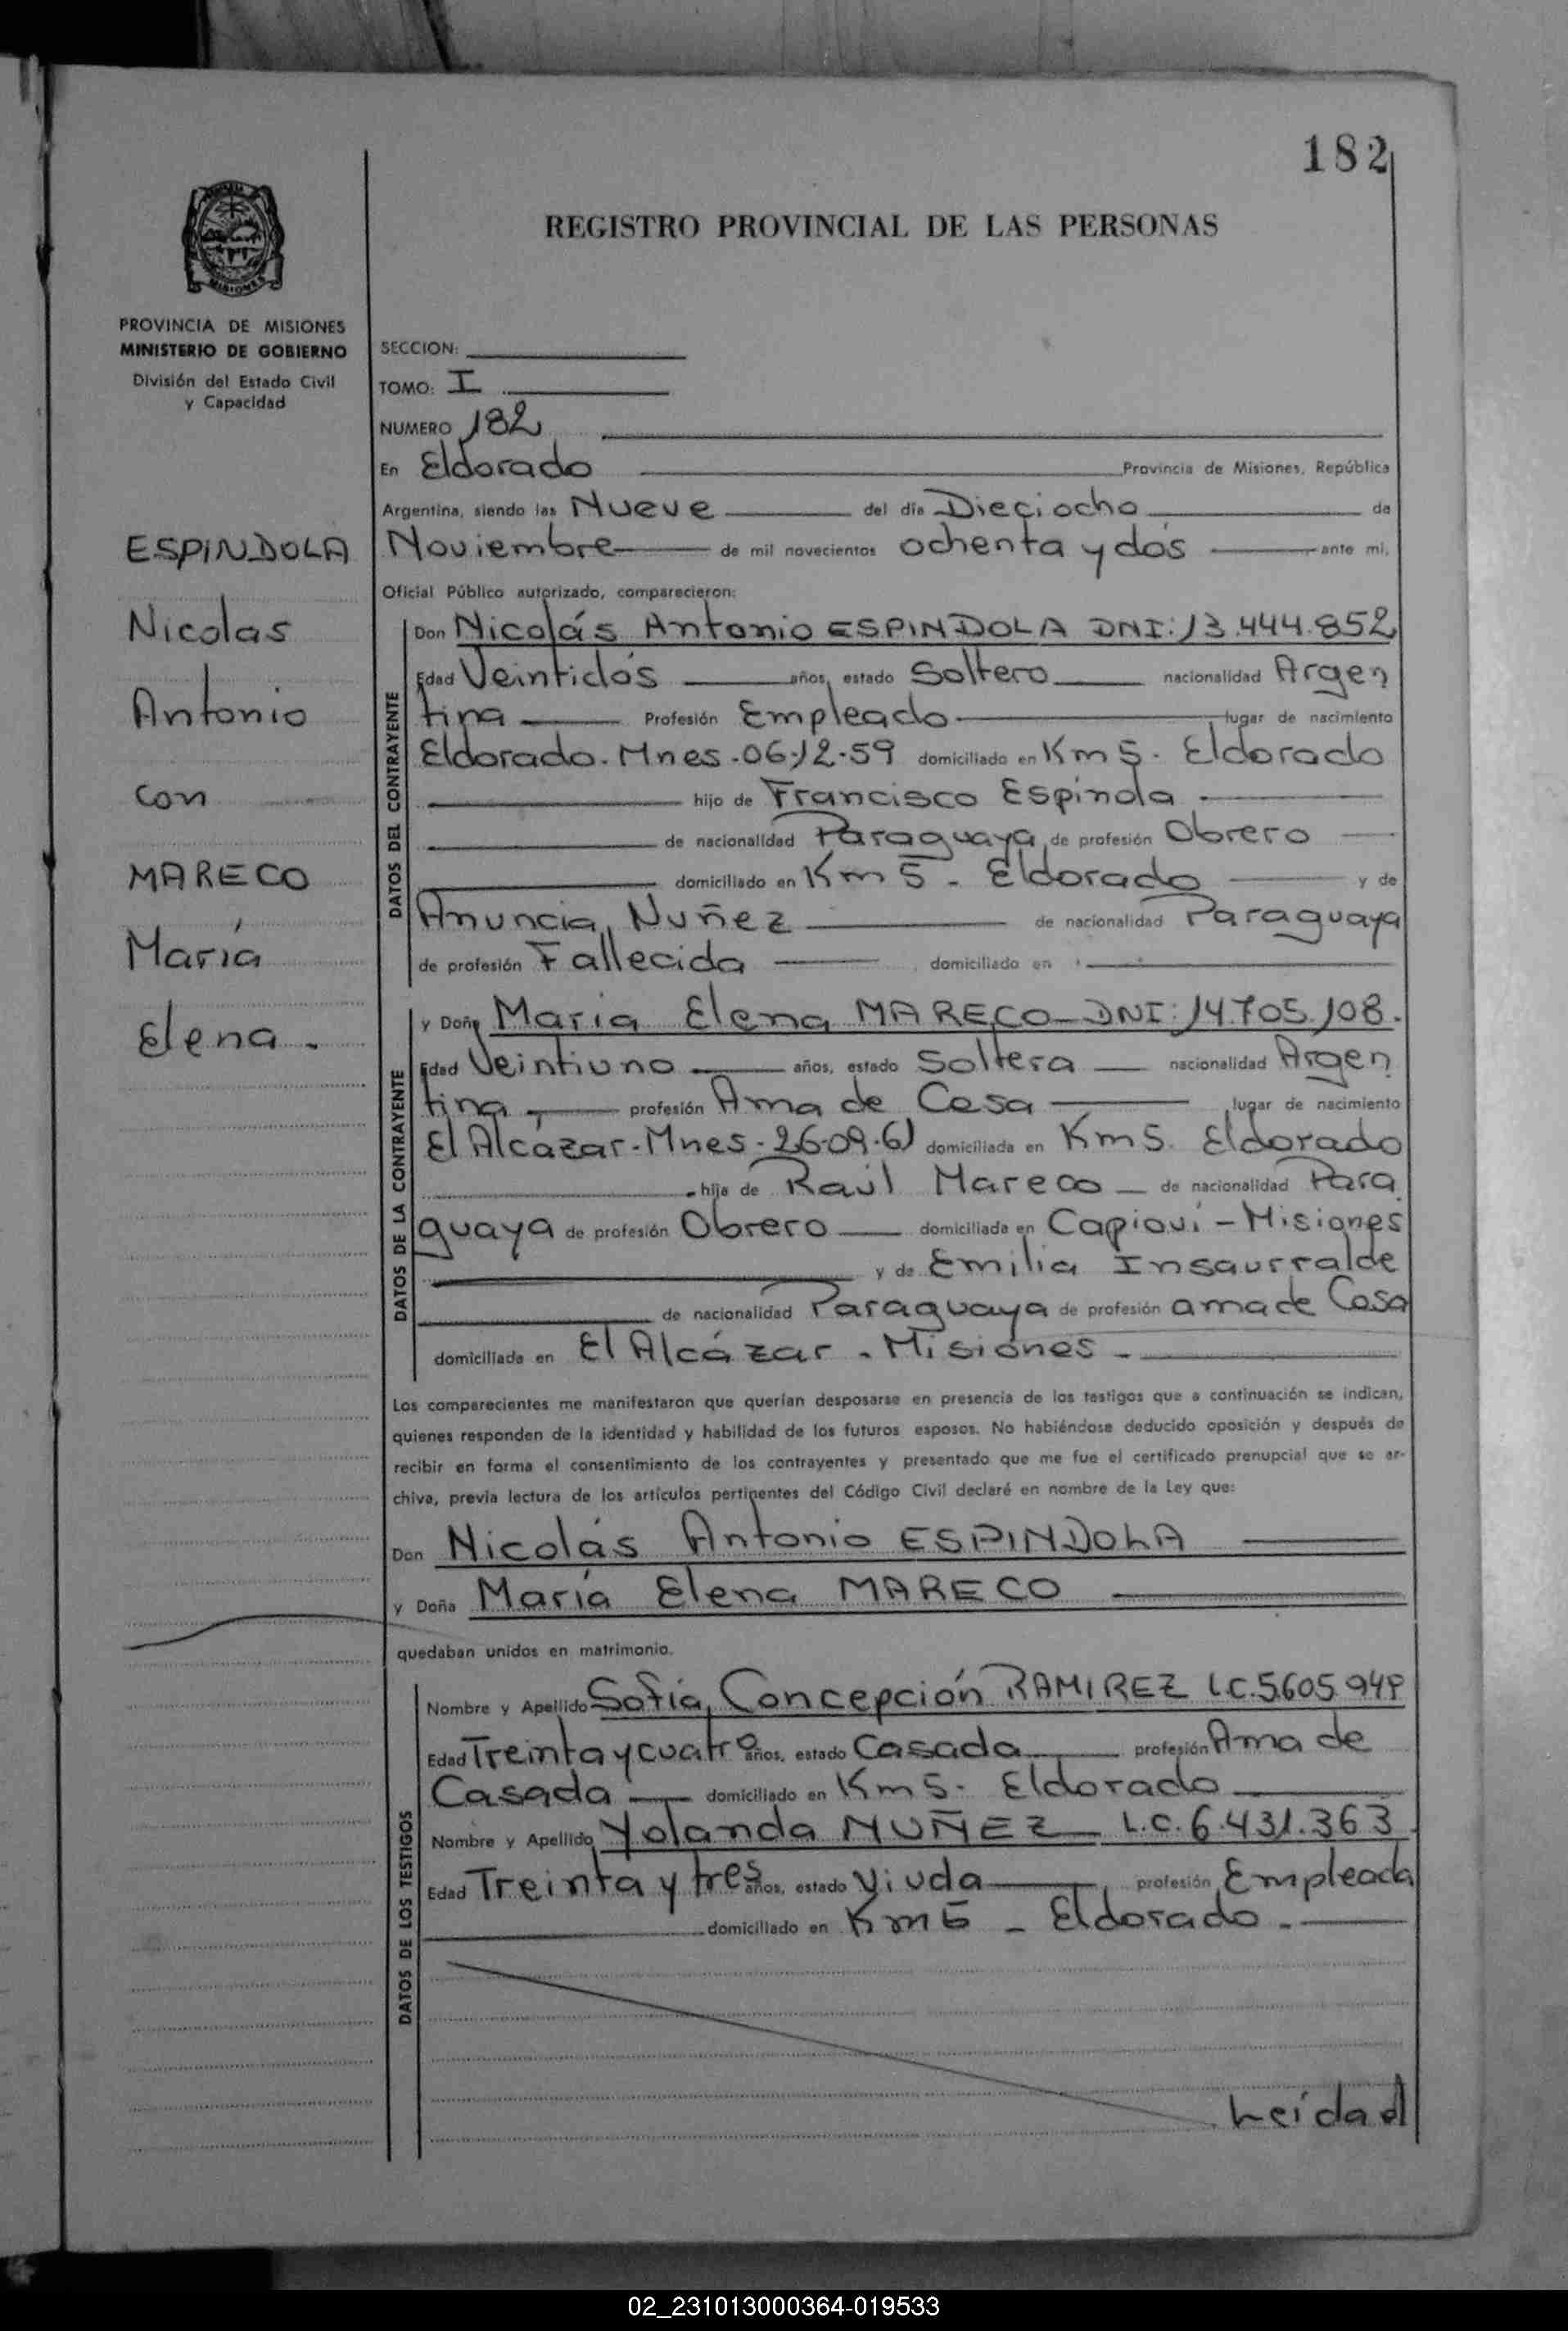 182
REGISTRO PROVINCIAL DE LAS PERSONAS
MISIONES
PROVINCIA DE MISIONES
MINISTERIO DE GOBIERNO
División del Estado Civil
y Capacidad
ESPINDOLA
Nicolas
Antonio
con
MARECO
María
Elena.
SECCION:
TOMO: I
NUMERO 182
En Eldorado Provincia de Misiones, República
Argentina, siendo las Nueve del día Dieciocho de
Noviembre de mil novecientos ochenta y dós ante mí,
Oficial Público autorizado, comparecieron:
DATOS DEL CONTRAYENTE
Don Nicolás Antonio ESPINDOLA DNI: 13.444.852
Edad Veintidós años, estado Soltero nacionalidad Argen
tina Profesión Empleado lugar de nacimiento
Eldorado. Mnes. 06-12-59 domiciliado en Km 5. Eldorado
hijo de Francisco Espínola
de nacionalidad Paraguaya de profesión Obrero
domiciliado en Km 5 - Eldorado y de
Anuncia Nuñez de nacionalidad Paraguaya
de profesión Fallecida domiciliado en
DATOS DE LA CONTRAYENTE
y Doña Maria Elena MARECO - DNI: 14.705.108.
Edad Veintiuno años, estado Soltera nacionalidad Argen
tina profesión Ama de Casa lugar de nacimiento
El Alcázar - Mnes - 26-09-61 domiciliada en Km 5. Eldorado
hija de Raúl Mareco de nacionalidad Para
guaya de profesión Obrero domiciliada en Capioví - Misiones
y de Emilia Insaurralde
de nacionalidad Paraguaya de profesión ama de Casa
domiciliada en El Alcázar - Misiónes -
Los comparecientes me manifestaron que querían desposarse en presencia de los testigos que a continuación se indican,
quienes responden de la identidad y habilidad de los futuros esposos. No habiéndose deducido oposición y después de
recibir en forma el consentimiento de los contrayentes y presentado que me fue el certificado prenupcial que se ar-
chiva, previa lectura de los artículos pertinentes del Código Civil declaré en nombre de la Ley que:
Don Nicolás Antonio ESPINDOLA
y Doña María Elena MARECO
quedaban unidos en matrimonio.
DATOS DE LOS TESTIGOS
Nombre y Apellido Sofía Concepción RAMIREZ L.C. 5.605.949
Edad Treinta y cuatro años, estado Casada profesión Ama de
Casada domiciliado en Km 5 - Eldorado
Nombre y Apellido Yolanda NUÑEZ L.C. 6.431.363
Edad Treinta y tres años, estado Viuda profesión Empleada
domiciliado en Km 5 - Eldorado -
Leída el
02_231013000364-019533